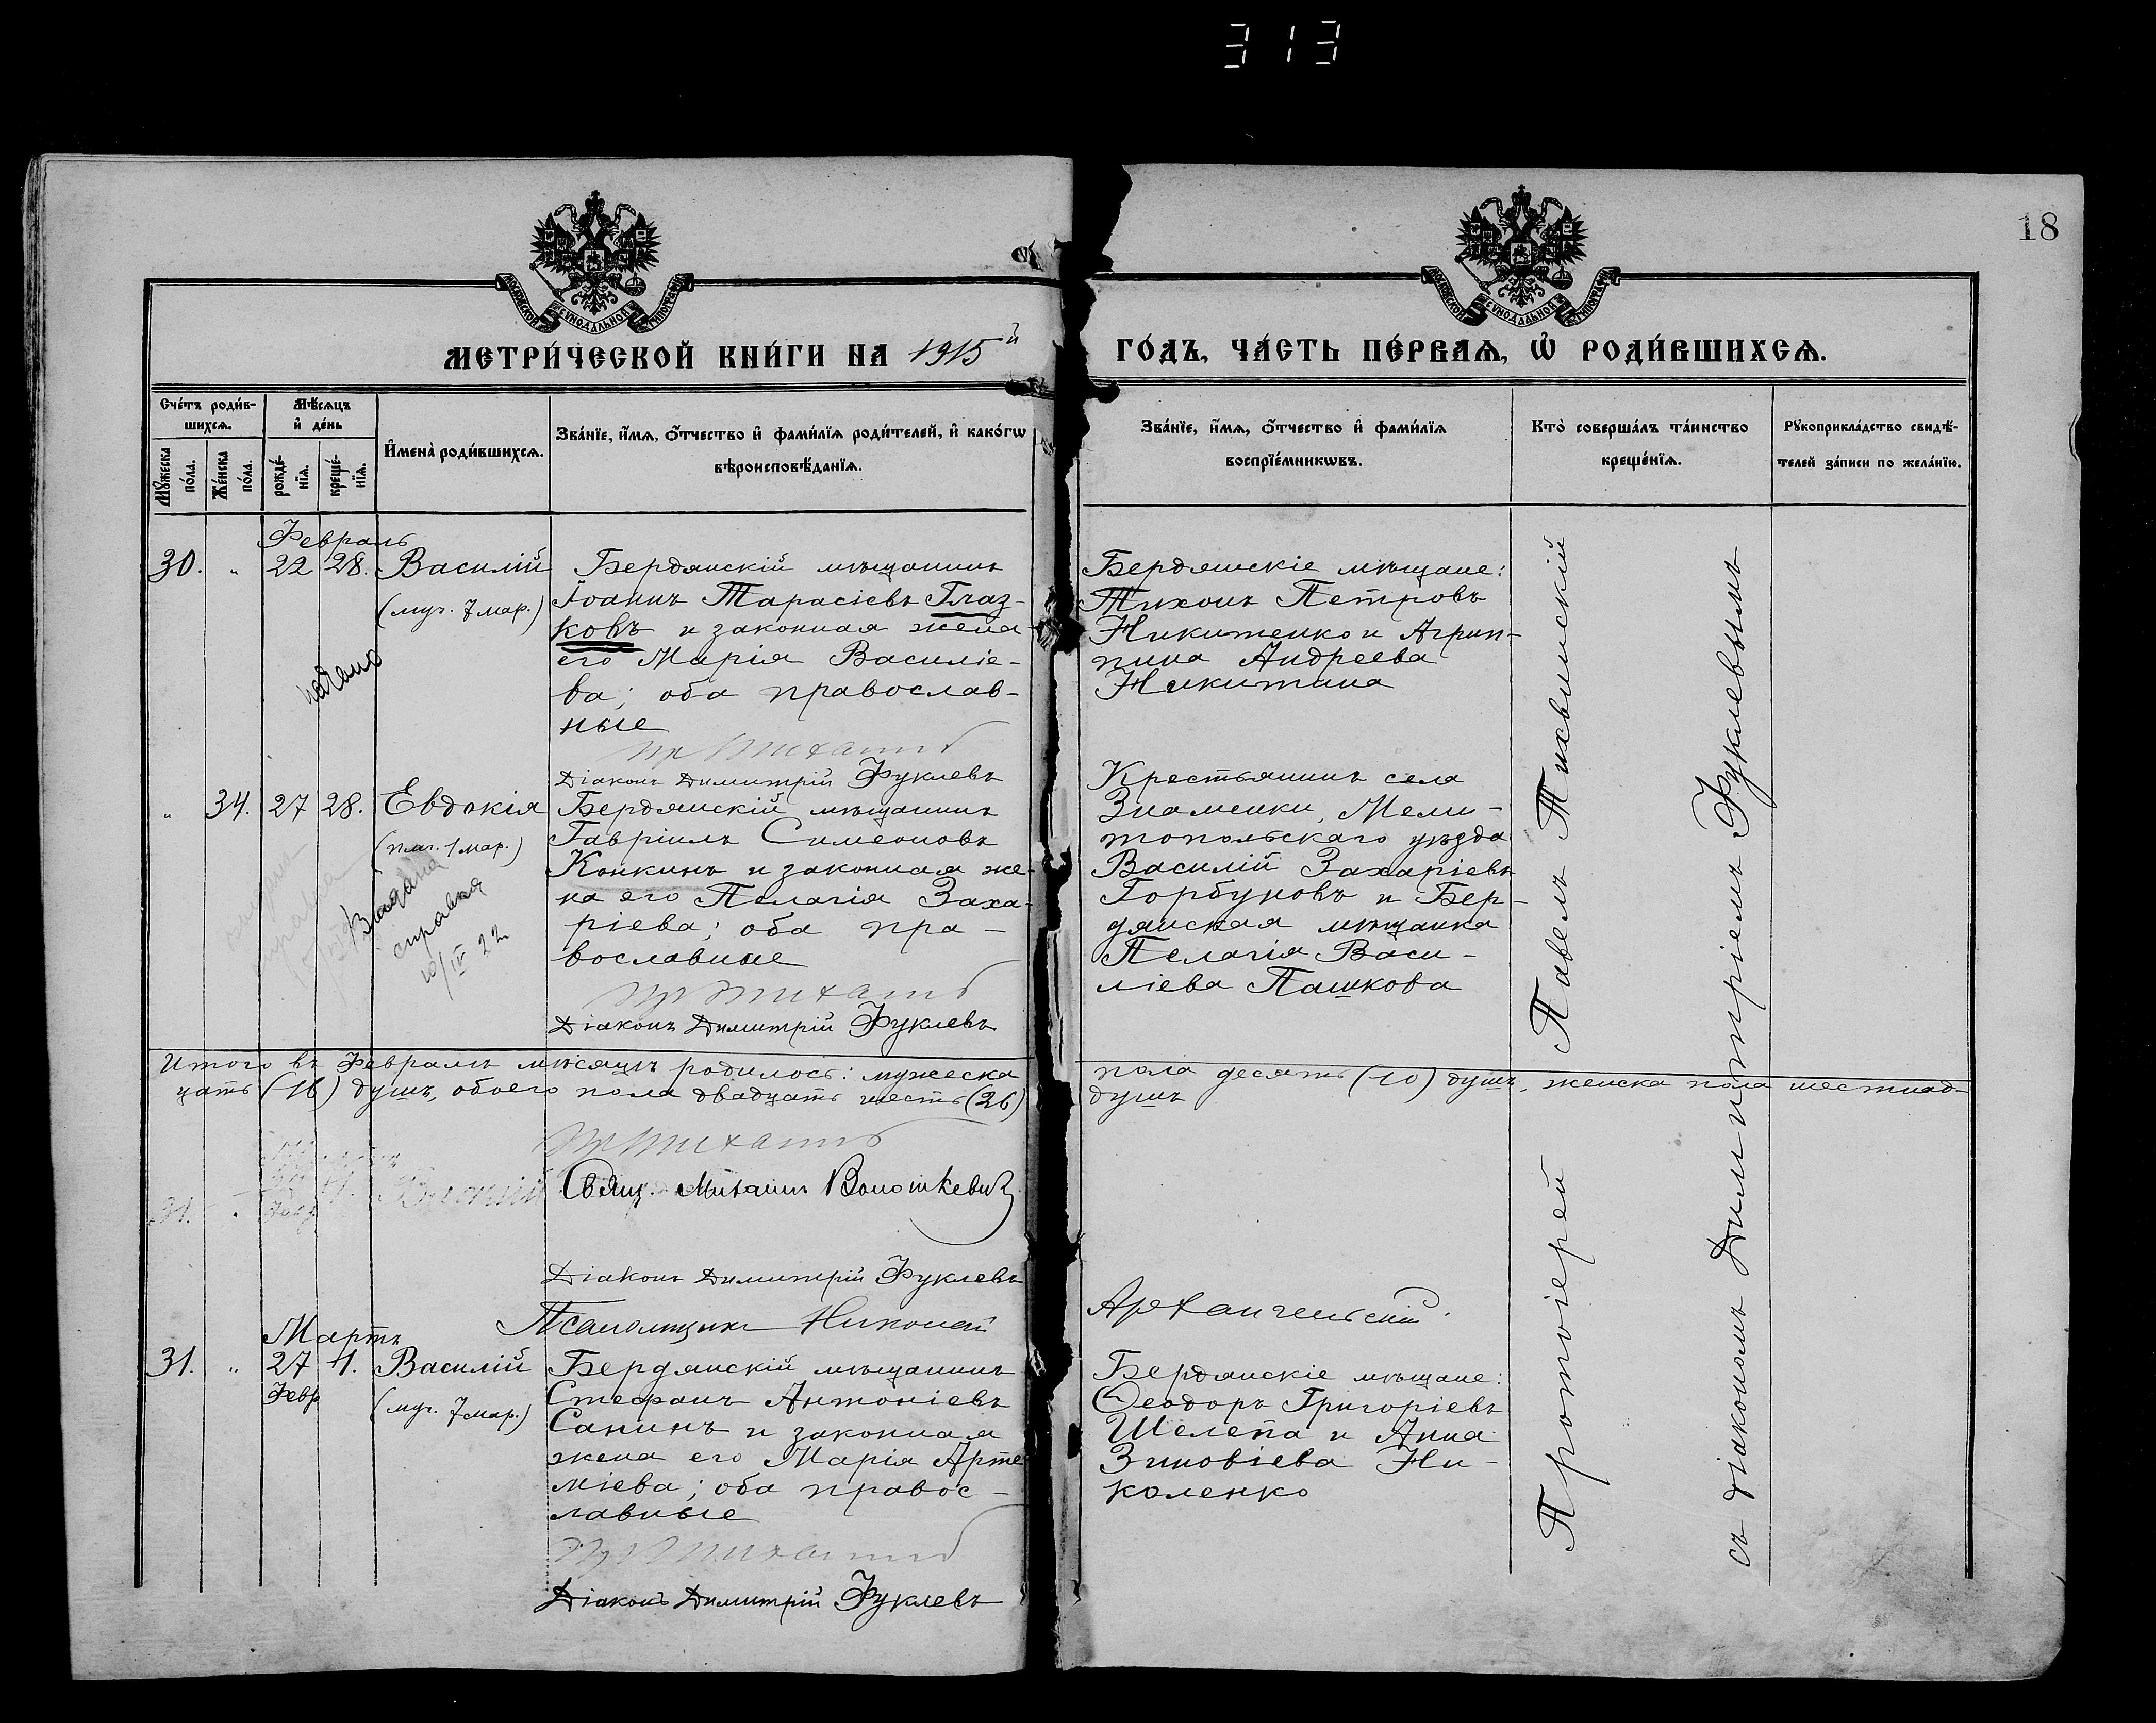 313
18
МОСКОВСКОЙ СУНОДАЛЬНОЙ ТИПОГРАФІИ
МОСКОВСКОЙ СУНОДАЛЬНОЙ ТИПОГРАФІИ
МЕТРИ́ЧЕСКОЙ КНИ́ГИ НА 1915й ГО́ДЪ, ЧА́СТЬ ПЕ́РВАѦ, Ѡ҆ РОДИ́ВШИХСѦ.
Сче́тъ роди́в-
шихсѧ.
Мꙋ́жеска по́ла.
Же́нска по́ла.
Мѣ́сѧцъ и҆ де́нь
рожде́-
нїѧ.
креще́-
нїѧ.
И҆мена̀ роди́вшихсѧ.
Зва́нїе, и҆́мѧ, ѻ҆́тчество и҆ фами́лїѧ роди́телей, и҆ како́гѡ
вѣроисповѣ́данїѧ.
Зва́нїе, и҆́мѧ, ѻ҆́тчество и҆ фами́лїѧ
воспрїе́мникѡвъ.
Кто̀ соверша́лъ та́инство
креще́нїѧ.
Рꙋкоприкла́дство свидѣ́-
телей за́писи по жела́нїю.
Февраль
30. „ 22 28. Василій
(муч. 7 мар.)
Бердянскій мѣщанинъ
Іоаннъ Тарасіевъ Глаз-
ковъ и законная жена
его Марія Василіе-
ва; оба православ-
ные
Діаконъ Димитрій Фуклевъ
Бердянскіе мѣщане:
Тихонъ Петровъ
Никитенко и Агрип-
пина Андреева
Никитина
„ 34. 27 28. Евдокія
(1 мар.)
Выдана
справка
10/IV 22
Бердянскій мѣщанинъ
Гавріилъ Симеоновъ
Конкинъ и законная же-
на его Пелагія Заха-
ріева; оба пра-
вославные
Діаконъ Димитрій Фуклевъ
Крестьянинъ села
Знаменки, Мели-
топольскаго уѣзда
Василій Захаріевъ
Горбуновъ и Бер-
дянская мѣщанка
Пелагія Васи-
ліева Пашкова
Итого въ Февралѣ мѣсяцѣ родилось: мужеска пола десять (10) душъ, женска пола шестнад-
цать (16) душъ, обоего пола двадцать шесть (26) душъ
Свящ. Михаилъ Волошкевич
Діаконъ Димитрій Фуклевъ
Псаломщикъ Николай Архангельскій.
Мартъ
31. „ 27 1. Василій
Февр
(муч. 7 мар.)
Бердянскій мѣщанинъ
Стефанъ Антоніевъ
Санинъ и законная
жена его Марія Арте
міева; оба правос-
лавные
Діаконъ Димитрій Фуклевъ
Бердянскіе мѣщане:
Ѳеодоръ Григоріевъ
Шелепа и Анна
Зиновіева Ни-
коленко
Протоіерей Павелъ Тихвинскій
съ діакономъ Димитріемъ Фуклевымъ